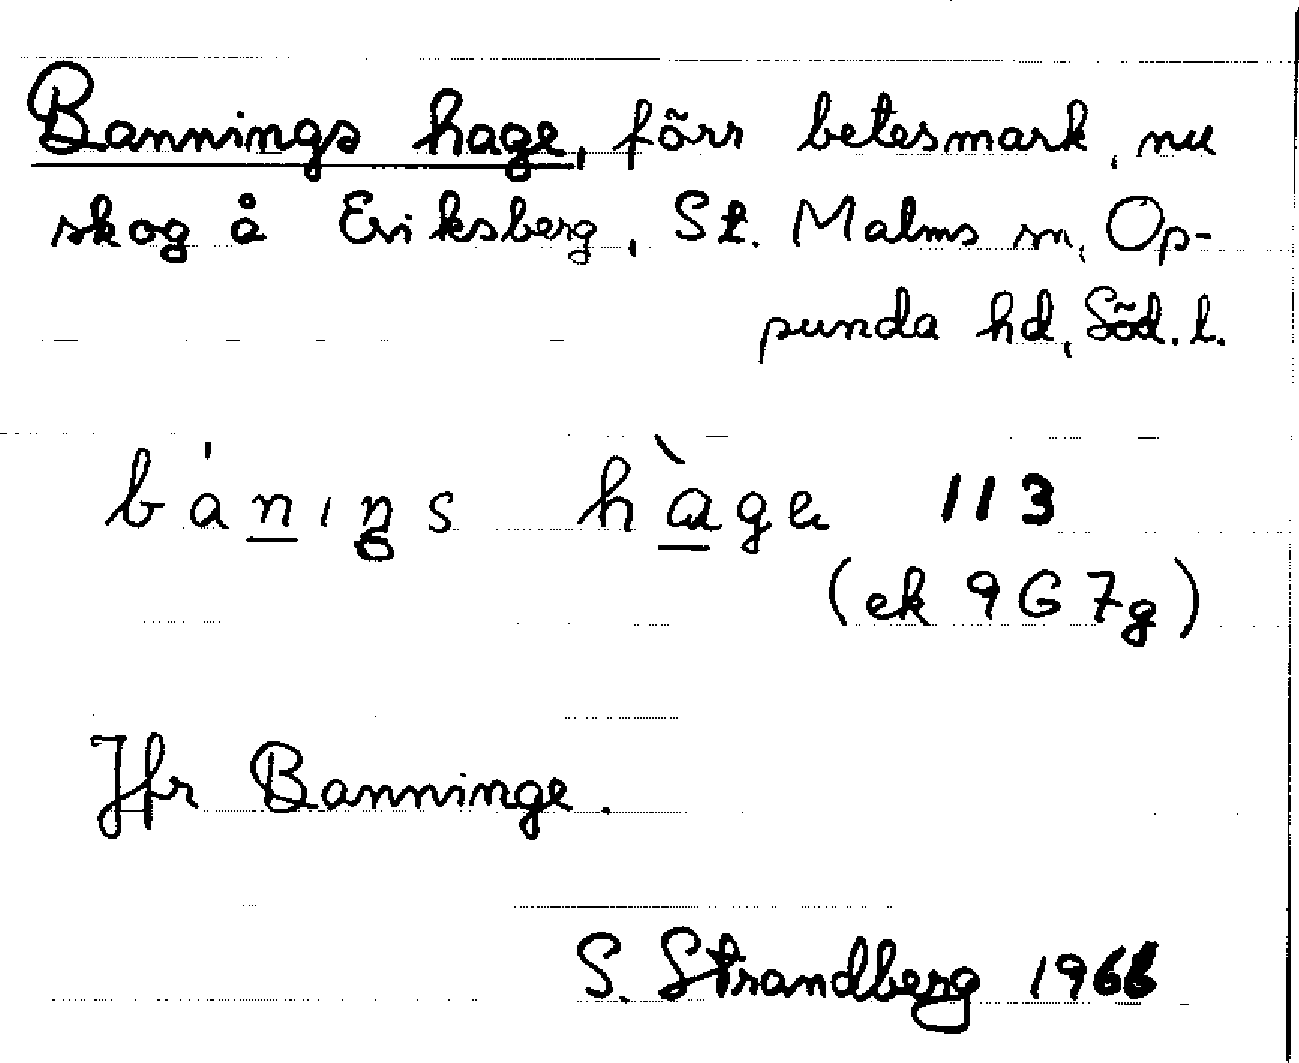 Bannings hage, förr betesmark, nu
skog å Eriksberg, St. Malms sn, Op-
punda hd, Söd. l.
bánıŋs hàge 113
(ek 9G 7g)
Jfr Banninge.
S. Strandberg 1966